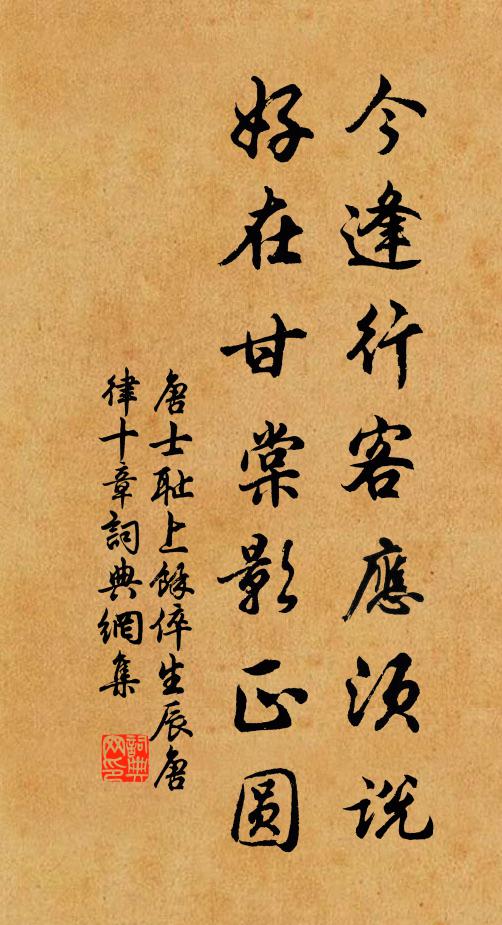 今逢行客應須說
好在甘棠影正圓
唐士耻上餘倅生辰唐
律十章詞典網集
詞典
网印